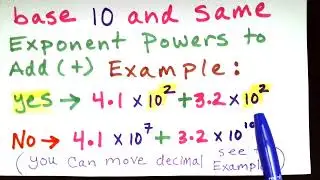 base 10 and same
Exponent Powers to
Add (+) Example:
yes → 4.1 × 10² + 3.2 × 10²
No → 4.1 × 10⁷ + 3.2 × 10¹⁰
(you can move decimal see
Example